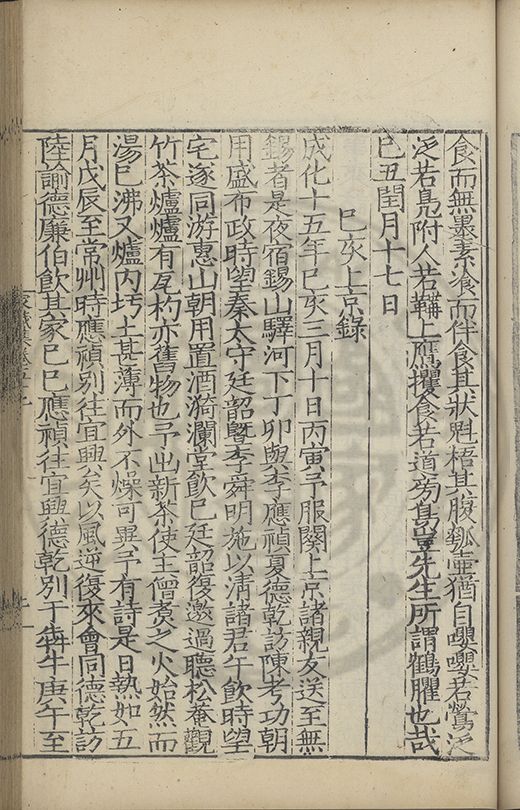 食而無墨素飡而伴食其狀魁梧其腹瓠壺猶自嚶嚶若鶯泛
泛若鳧附人若鞲上鷹攫食若道旁烏豈先生所謂鶴臞也哉
己丑閏月十七日
己亥上京錄
成化十五年己亥三月十日丙寅予服闋上京諸親友送至無
錫者是夜宿錫山驛河下丁卯與李應禎夏德乾訪陳考功朝
用盛布政時望秦太守廷韶暨李舜明施以清諸君午飲時望
宅遂同游惠山朝用置酒漪瀾堂飲已廷韶復邀過聽松菴觀
竹茶爐爐有瓦杓亦舊物也予出新茶使主僧煑之火始然而
湯已沸又爐內圬土甚薄而外不燥可異予有詩是日熱如五
月戊辰至常州時應禎別往宜興矣以風逆復來會同德乾訪
陸諭德廉伯飲其家己巳應禎往宜興德乾別于犇牛庚午至